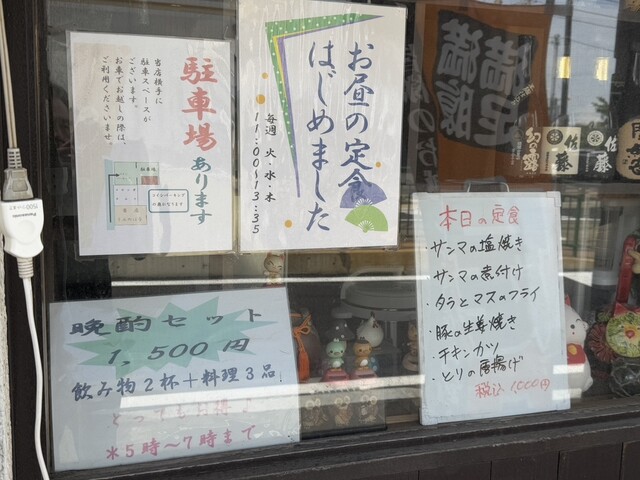 駐車場あります
当店横手に
駐車スペースが
ございます。
お車でお越しの際は、
ご利用くださいませ。
駐車場
お昼の定食
はじめました
毎週 火・水・木
11:00～13:35
満足
満腹
佐藤
佐藤
本日の定食
・サンマの塩焼き
・サンマの煮付け
・タラとマスのフライ
・豚の生姜焼き
・チキンカツ
・とりの唐揚げ
税込1,000円
晩酌セット
1,500円
飲み物2杯＋料理3品!
とってもお得♪
＊5時～7時まで
Panasonic